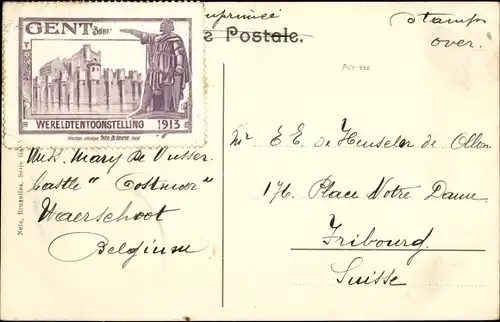 Imprimée
Stamp
over.
e Postale.
GENT
WERELDTENTOONSTELLING
1913
Adresse
Miss. Mary De Visser.
Castle "Oostmoer"
Waerschoot
Belgium
Mr E. E. de Heuseler de Ollon
176 Place Notre Dame
Fribourg.
Suisse
Nels, Bruxelles, Serie